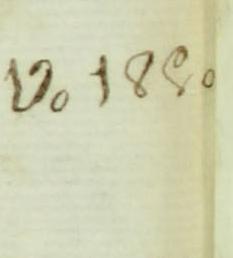 No 188.